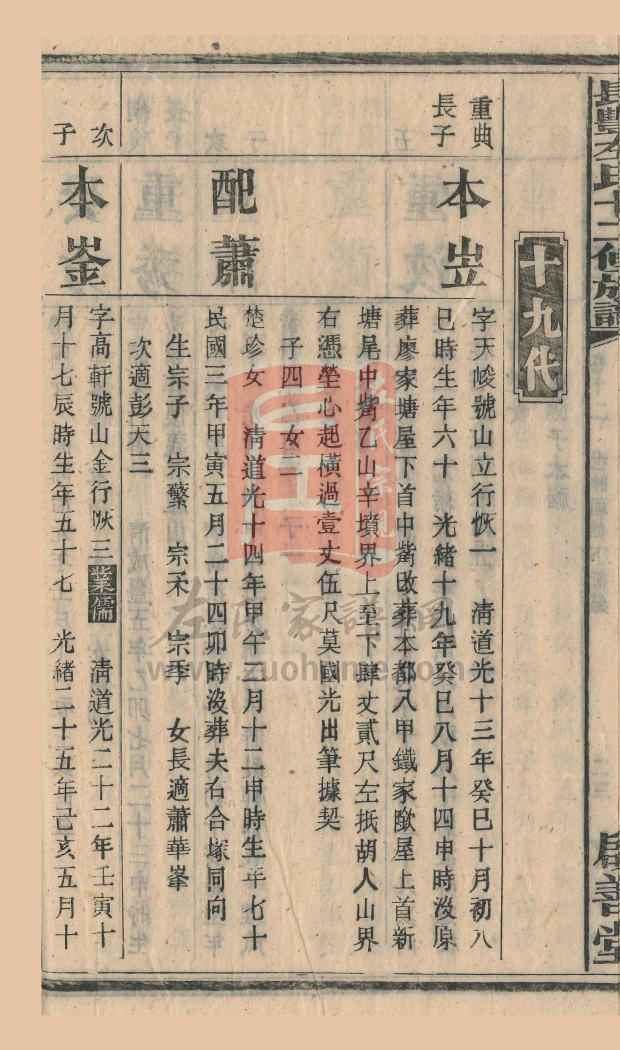 長豐左氏十二修族譜
啟善堂
十九代
重典
長子
本岦
字天峻號山立行恢一 清道光十三年癸巳十月初八
巳時生年六十 光緒十九年癸巳八月十四申時沒原
葬廖家塘屋下首中嘴改葬本都八甲鐵家屋上首新
塘尾中嘴乙山辛墳界上至下肆丈貳尺左抵胡人山界
右憑塋心起橫過壹丈伍尺莫國光出筆據契
子四 女二
配蕭
楚珍女 清道光十四年甲午三月十二申時生年七十
民國三年甲寅五月二十四卯時沒葬夫右合塚同向
生宗子 宗蘩 宗禾 宗季 女長適蕭華峯
次適彭天三
次
子
本崟
字高軒號山金行恢三業儒 清道光二十二年壬寅十
月十七辰時生年五十七 光緒二十五年己亥五月十
左氏家譜網
www.zuohome.com